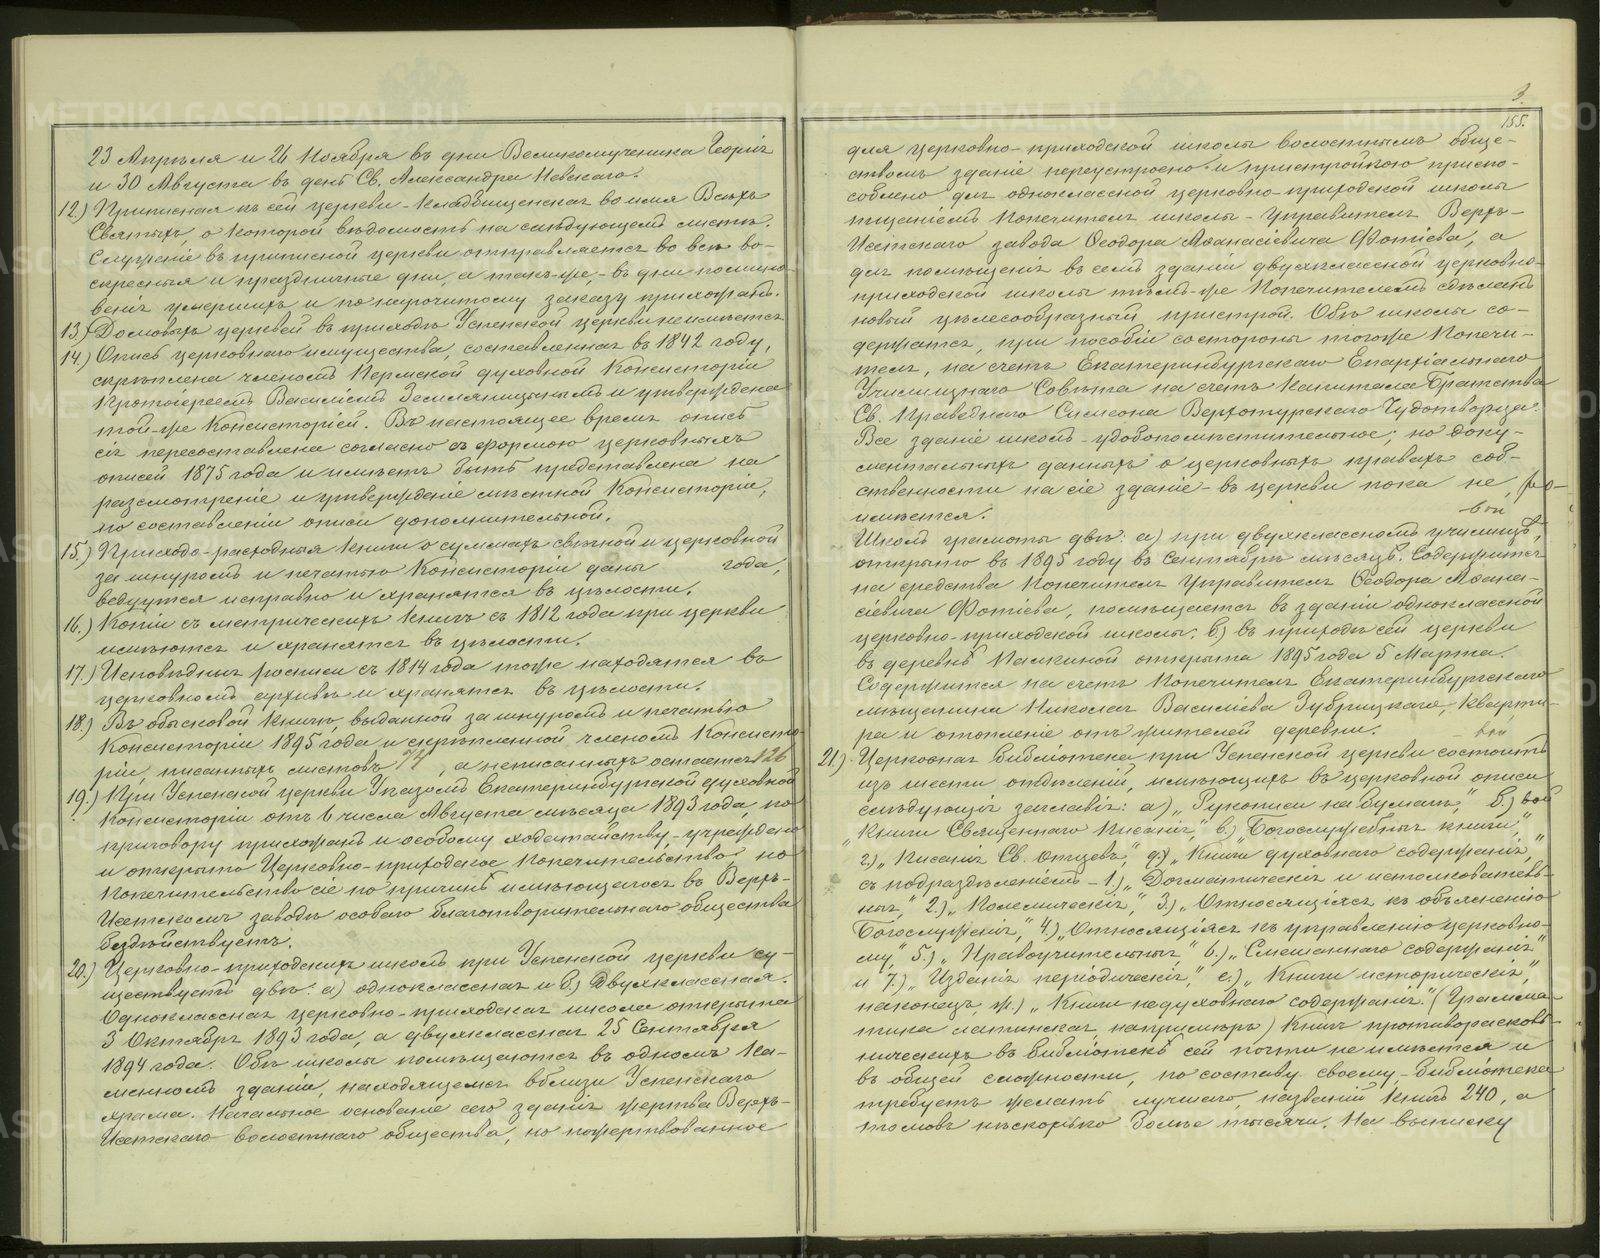 23 Апрѣля и 26 Ноября въ дни Великомученика Георгія
и 30 Августа въ день Св. Александра Невскаго.
12.) Приписная къ сей церкви - кладбищенская во имя Всѣхъ
Святыхъ, о которой вѣдомость на слѣдующемъ листѣ.
Служеніе въ приписной церкви отправляется во всѣ во-
скресные и праздничные дни, а такъ-же, - въ дни помино-
венія умершихъ и по нарочитому заказу прихожанъ.
13.) Домовыхъ церквей въ приходѣ Успенской церкви не имѣется
14.) Опись церковнаго имущества, составленная въ 1842 году,
скрѣплена членомъ Пермской духовной Консисторіи
Протоіереемъ Василіемъ Земляницынымъ и утверждена
той-же Консисторіей. Въ настоящее время опись
сія пересоставлена согласно съ формою церковныхъ
описей 1875 года и имѣетъ быть представлена на
разсмотреніе и утвержденіе мѣстной Консисторіи,
по составленіи описи дополнительной.
15.) Приходо-расходныя книги о суммахъ свѣчной и церковной
за шнуромъ и печатью Консисторіи даны года,
ведутся исправно и хранятся въ цѣлости.
16.) Копіи съ метрическихъ книгъ съ 1812 года при церкви
имѣются и хранятся въ цѣлости.
17.) Исповѣдныя росписи съ 1814 года тоже находятся въ
церковномъ архивѣ и хранятся въ цѣлости.
18.) Въ обыскной книгѣ, выданной за шнуромъ и печатью
Консисторіи 1895 года и скрѣпленной членомъ Консисто-
ріи, писанныхъ листовъ 74, а неписанныхъ остается 126
19.) При Успенской церкви Указомъ Екатеринбургской духовной
Консисторіи отъ 6 числа Августа мѣсяца 1893 года, по
приговору прихожанъ и особому ходатайству, - учреждено
и открыто Церковно-приходское попечительство, но
попечительство сіе по причинѣ имѣющагося въ Верхъ-
Исетскомъ заводѣ особаго благотворительнаго общества
бездѣйствуетъ.
20.) Церковно-приходскихъ школъ при Успенской церкви су-
ществуетъ двѣ: а) одноклассная и б.) Двухклассная.
Одноклассная церковно-приходская школа открыта
3 Октября 1893 года, а двухклассная 25 Сентября
1894 года. Обѣ школы помѣщаются въ одномъ Ка-
менномъ зданіи, находящемся вблизи Успенскаго
храма. Начальное основаніе сего зданія жертва Верхъ-
Исетскаго волостнаго общества, но пожертвованное
3.
155.
для церковно-приходской школы волостнымъ обще-
ствомъ зданіе переустроено и пристройкою приспо-
соблено для одноклассной церковно-приходской школы
тщаніемъ Попечителя школы - Управителя Верхъ-
Исетскаго завода Ѳеодора Аѳанасіевича Фотіева, а
для помѣщенія въ семъ зданіи двухклассной церковно-
приходской школы тѣмъ-же Попечителемъ сдѣланъ
новый цѣлесообразный пристрой. Обѣ школы со-
держатся, при пособіи со стороны того же Попечи-
теля, на счетъ Екатеринбургскаго Епархіальнаго
Училищнаго Совѣта на счетъ Капитала Братства
Св. Праведнаго Симеона Верхотурскаго Чудотворца.
Все зданіе школъ - удобопомѣстительное; но доку-
ментальныхъ данныхъ о церковныхъ правахъ соб-
ственности на сіе зданіе - въ церкви пока не
имѣется.
Школъ грамоты двѣ: а) при двухклассномъ училищѣ,
открыто въ 1895 году въ Сентябрѣ мѣсяцѣ. Содержится
на средства Попечителя Управителя Ѳеодора Аѳана-
сіевича Фотіева, помѣщается въ зданіи одноклассной
церковно-приходской школы. б.) въ приходѣ сей церкви
въ деревнѣ Палкиной открыта 1895 года 5 Марта.
Содержится на счетъ Попечителя Екатеринбургскаго
мѣщанина Николая Василіева Зубрицкаго, кварти-
ра и отопленіе отъ жителей деревни.
21.) Церковная библіотека при Успенской церкви состоитъ
изъ шести отдѣленій, имѣющихъ въ церковной описи
слѣдующія заглавія: а) „Рукописи на бумагѣ,“ б.)
„Книги Священнаго Писанія,“ в.) „Богослужебныя книги,“
г.) „Писанія Св. отцевъ,“ д.) „Книги духовнаго содержанія,“
съ подраздѣленіемъ - 1.) „Догматическія и истолкователь-
ныя,“ 2.) „Полемическія,“ 3.) „Относящіяся къ объясненію
Богослуженія,“ 4.) „Относящіяся къ управленію церковно-
му,“ 5.) „Нравоучительныя,“ 6.) „Смешаннаго содержанія,“
и 7.) „Изданія періодическія,“ е.) „Книги историческія,“
наконецъ, ж.) „Книги не духовнаго содержанія.“ (Грамма-
тика латинская напримѣръ) Книгъ противорасколь-
ническихъ въ библіотекѣ сей почти не имѣется и
въ общей сложности, по составу своему, - библіотека
требуетъ желать лучшаго, названій книгъ 240, а
томовъ нѣсколько болѣе тысячи. На выписку